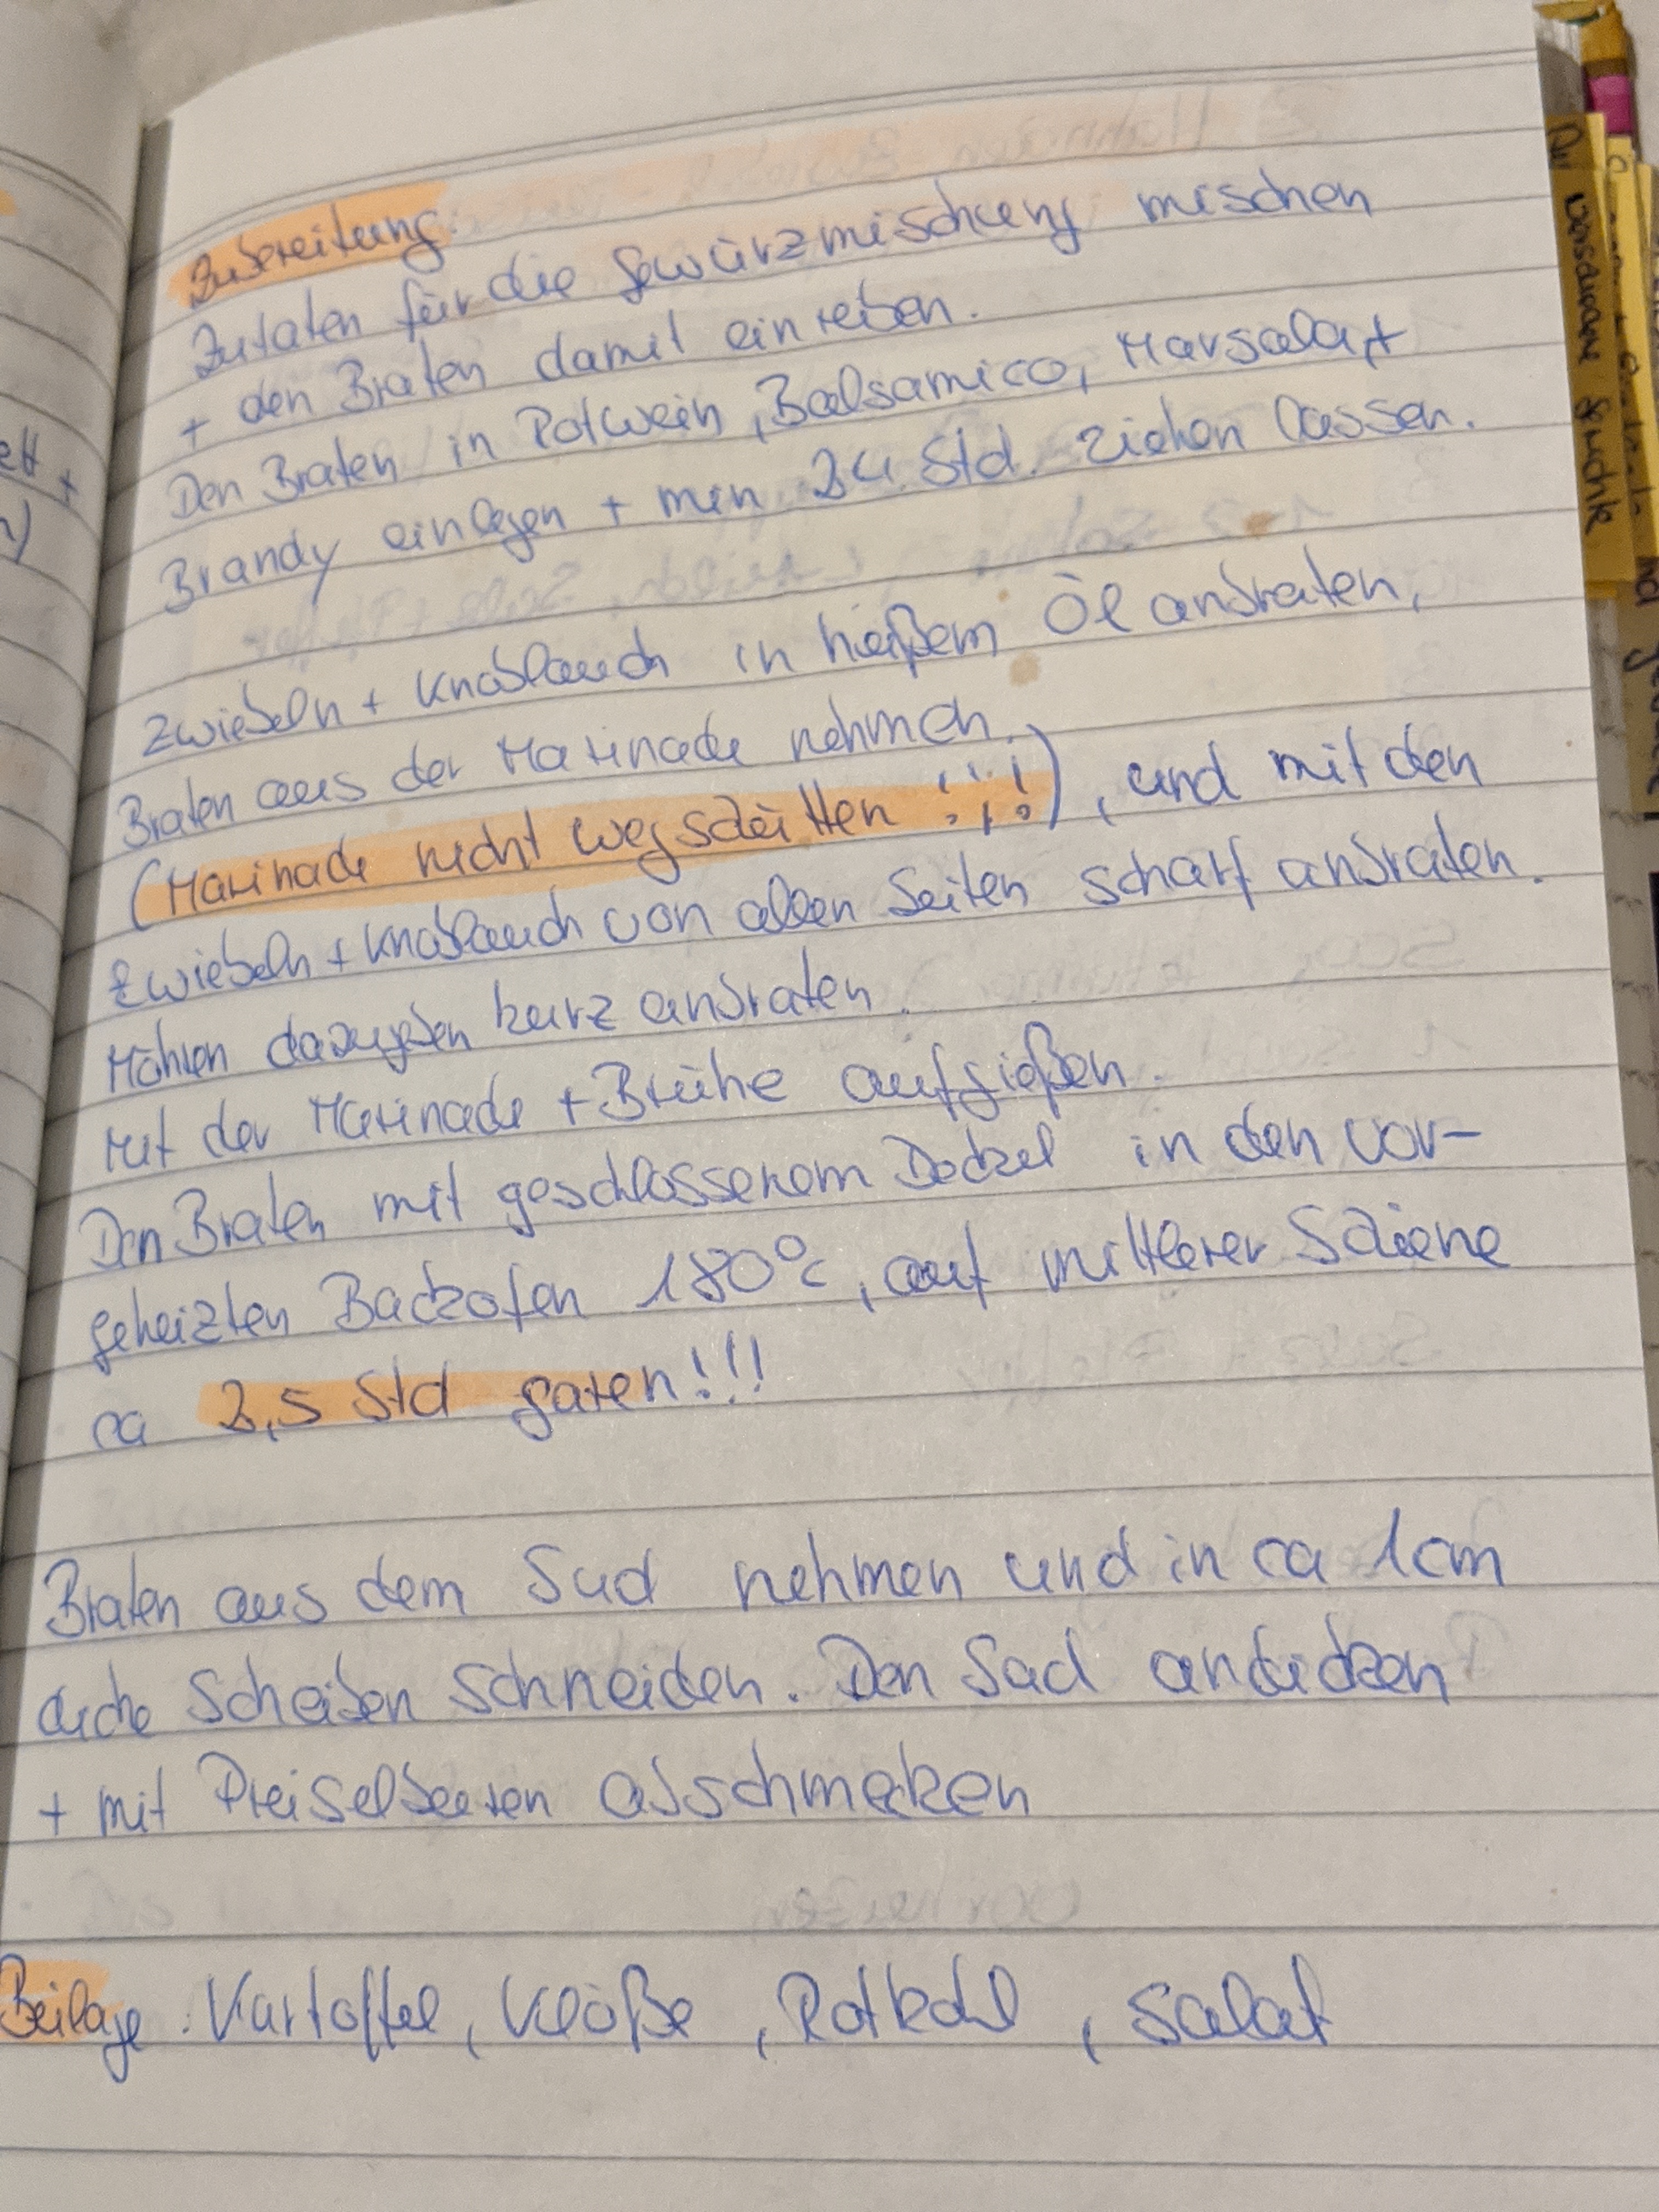 Zubereitung:
Zutaten für die Gewürzmischung mischen
+ den Braten damit einreiben.
Den Braten in Rotwein, Balsamico, Marsala, +
Brandy einlegen + min 24 Std. ziehen lassen.
Zwiebeln + Knoblauch in heißem Öl anbraten,
Braten aus der Marinade nehmen.
(Marinade nicht wegschütten !!!), und mit den
Zwiebeln + Knoblauch von allen Seiten scharf anbraten.
Möhren dazugeben kurz anbraten.
Mit der Marinade + Brühe aufgießen.
Den Braten mit geschlossenem Deckel in den vor-
geheizten Backofen 180°C, auf mittlerer Schiene
ca 2,5 Std garen!!!
Braten aus dem Sud nehmen und in ca 1cm
dicke Scheiben schneiden. Den Sud andicken
+ mit Preiselbeeren abschmecken
Beilage: Kartoffel, Klöße, Rotkohl, Salat